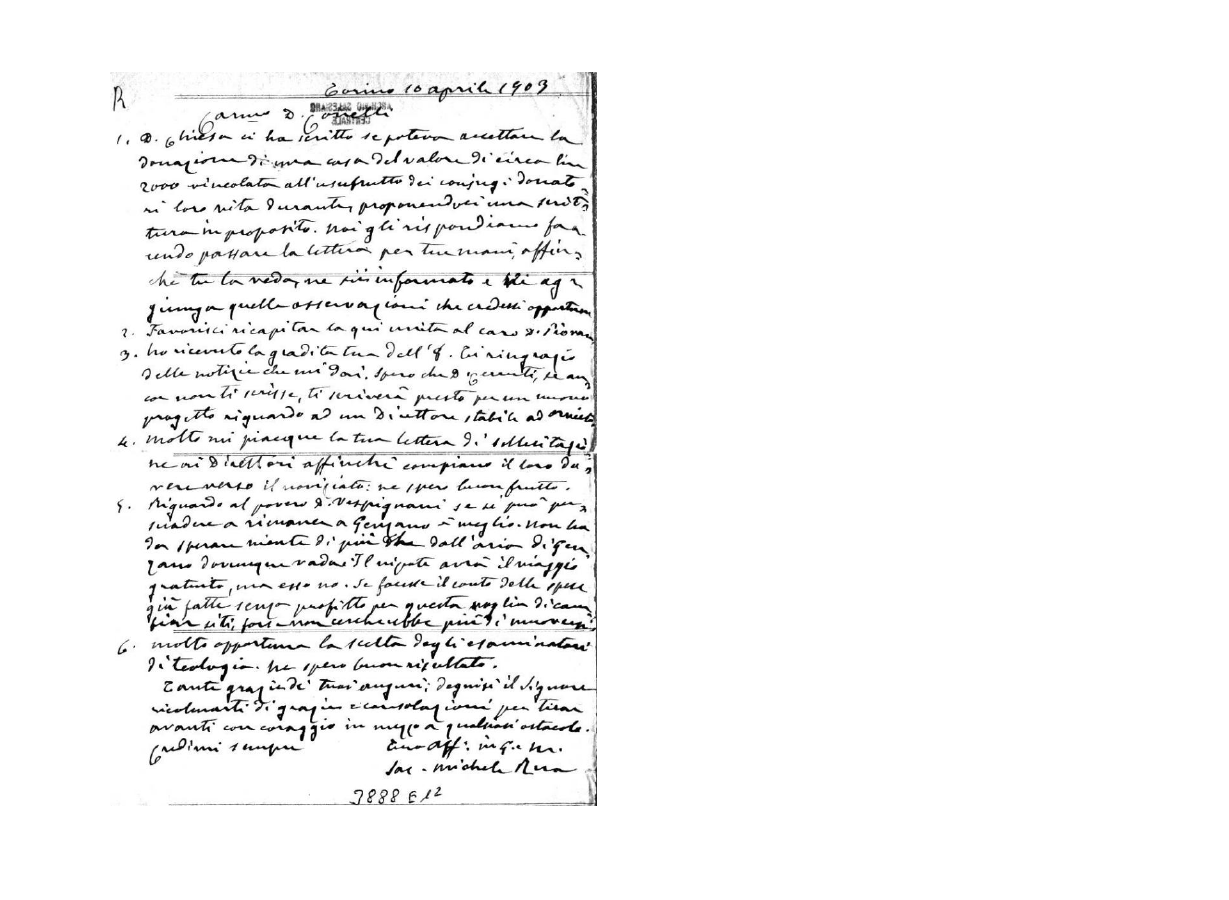 R
Torino 10 aprile 1903
ARCHIVIO SALESIANO
CENTRALE
Carmo D. Conelli
1. D. Chiesa ci ha scritto se poteva accettare la
donazione di una casa del valore di circa lire
2000 vincolata all'usufrutto dei conjugi donato-
ri loro vita durante, proponendoci una scrit-
tura in proposito. Noi gli rispondiamo fa
cendo passare la lettera per tue mani, affin-
chè tu la veda, ne sii informato e vi ag
giunga quelle osservazioni che credessi opportune
2. Favorisci ricapitare la qui unita al caro D.
3. Ho ricevuto la gradita tua dell'8. Ti ringrazio
delle notizie che mi dai. Spero che D. Cerruti, se an-
cor non ti scrisse, ti scriverà presto per un nuovo
progetto riguardo ad un Direttore stabile ad
4. Molto mi piacque la tua lettera di sollecitazio
ne ai Direttori affinchè compiano il loro do-
vere verso il noviziato: ne spero buon frutto.
5. Riguardo al povero D. Vespignani se si può per-
suadere a rimanere a Genzano è meglio. Non ha
da sperare niente di più che dall'aria di Gen
zano dovunque vada. Il nipote avrà il viaggio
gratuito, ma esso no. Se facesse il conto delle spese
già fatte senza profitto per questa voglia di cam
biar siti, forse non cercherebbe più di muoversi
6. Molto opportuna la scelta degli esaminatori
di teologia. Ne spero buon risultato.
Tante grazie de' tuoi auguri; degnisi il Signore
ricolmarti di grazie e consolazioni per tirar
avanti con coraggio in mezzo a qualsiasi ostacolo.
Credimi sempre
tuo Aff. in G. e M.
Sac. Michele Rua
3888 E 12